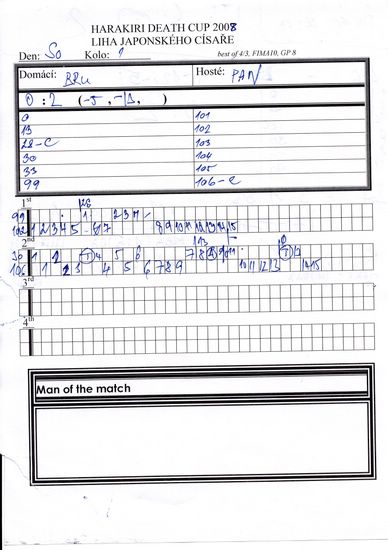 HARAKIRI DEATH CUP 2008
LIHA JAPONSKÉHO CÍSAŘE
Den: So Kolo: 1 best of 4/3, FIMA10, GP 8
Domácí: BRU Hosté: PAN
0 : 2 (-5, -13, )
0 101
13 102
28-C 103
30 104
33 105
99 106-C
1st
99
102 1 2 3 4 5
8 9 10 11 12 13 14 15
2nd
30 1 2 T 4 5 6
106 1 2 3 4 5 6 7 8 9
10 11 12 13 14 15
3rd
4th
Man of the match